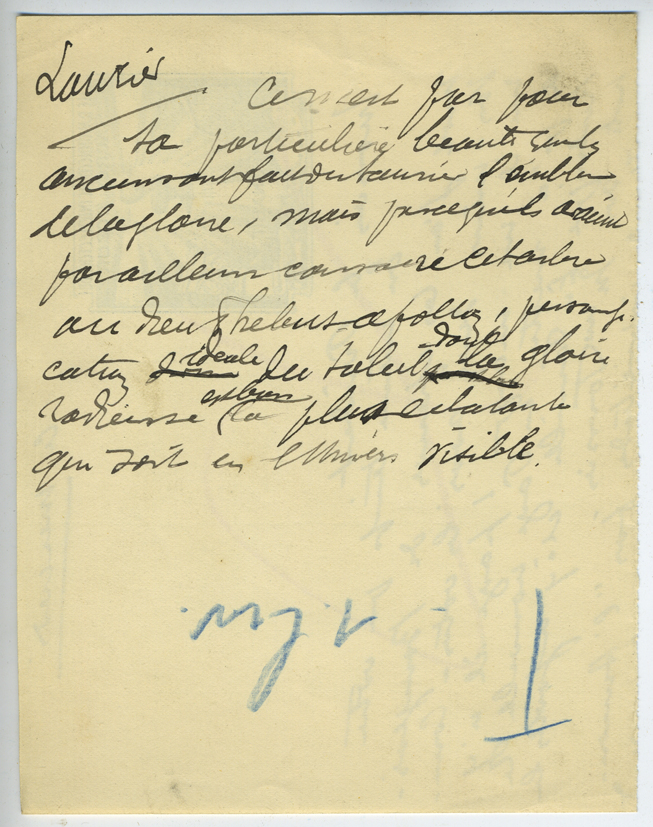 Laurier
Ce n'est pas pour
sa particulière beauté que les
anciens ont fait du laurier l'emblème
de la gloire, mais parcequ'ils avaient
par ailleurs consacré cet arbre
au dieu Phebus-Apollon, personnifi-
cation idéale du soleil dont la gloire
radieuse est bien la plus éclatante
qui soit en l'Univers visible.